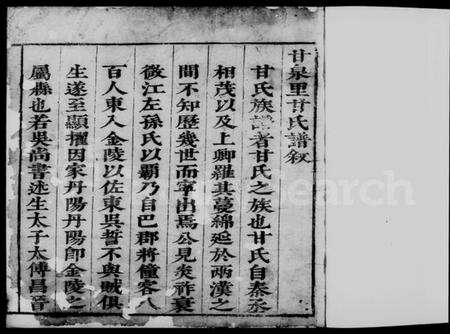 甘泉里甘氏譜敘
甘氏族譜者甘氏之族也甘氏自秦丞
相茂以及上卿羅其蔓綿延於兩漢之
間不知歷幾世而寧出焉公見炎祚衰
微江左孫氏以霸乃自巴郡將僮客八
百人東入金陵以佐東吳誓不與賊俱
生遂至顯擢因家丹陽丹陽卽金陵之
屬縣也若吳尚書述生太子太傅昌晉